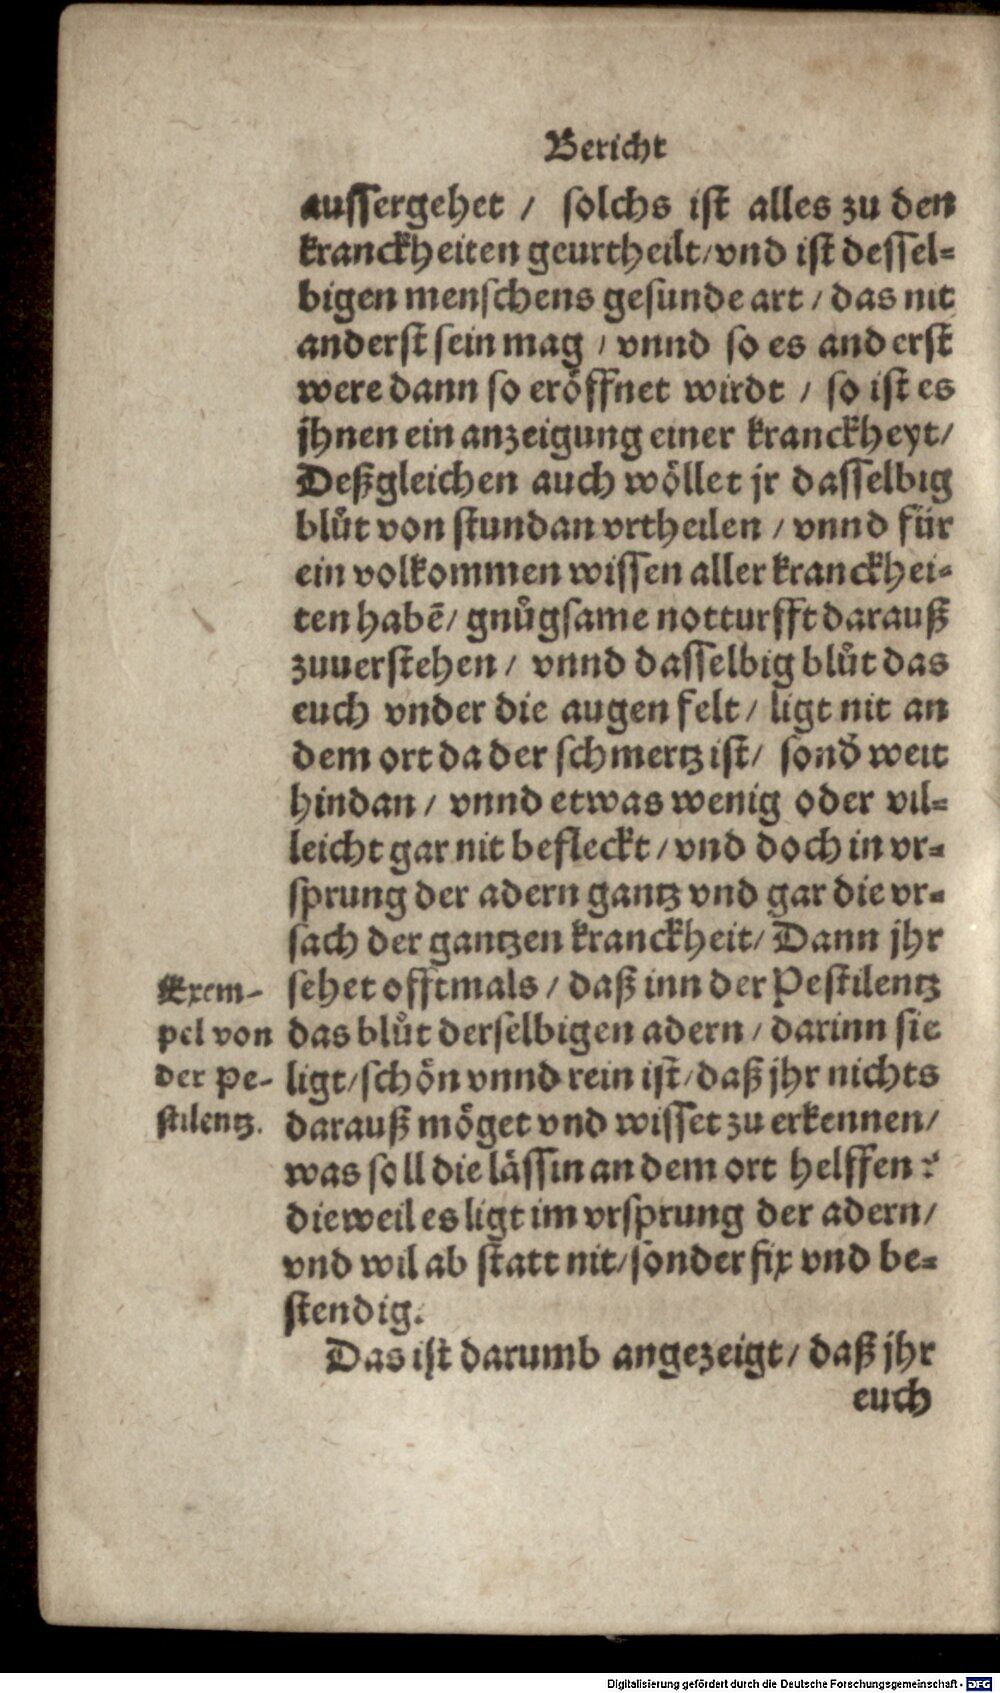 Bericht
aussergehet / solchs ist alles zu den
kranckheiten geurtheilt/vnd ist dessel-
bigen menschens gesunde art / das nit
anderst sein mag / vnnd so es anderst
were dann so eröffnet wirdt / so ist es
jhnen ein anzeigung einer kranckheyt/
Deßgleichen auch wöllet jr dasselbig
blůt von stundan vrtheilen / vnnd für
ein volkommen wissen aller kranckhei-
ten habẽ/ gnůgsame notturfft darauß
zuuerstehen / vnnd dasselbig blůt das
euch vnder die augen felt / ligt nit an
dem ort da der schmertz ist/ sond̕ weit
hindan / vnnd etwas wenig oder vil-
leicht gar nit befleckt / vnd doch in vr-
sprung der adern gantz vnd gar die vr-
sach der gantzen kranckheit/ Dann jhr
sehet offtmals / daß inn der Pestilentz
das blůt derselbigen adern / darinn sie
ligt/schön vnnd rein ist/daß jhr nichts
darauß möget vnd wisset zu erkennen/
was soll die lässin an dem ort helffen?
dieweil es ligt im vrsprung der adern/
vnd wil ab statt nit/sonder fix vnd be-
stendig.
Das ist darumb angezeigt / daß jhr
euch
Exem-
pel von
der Pe-
stilentz.
Digitalisierung gefördert durch die Deutsche Forschungsgemeinschaft - DFG